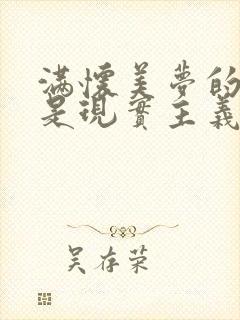 满懷美夢的
是現實主義
吴存荣